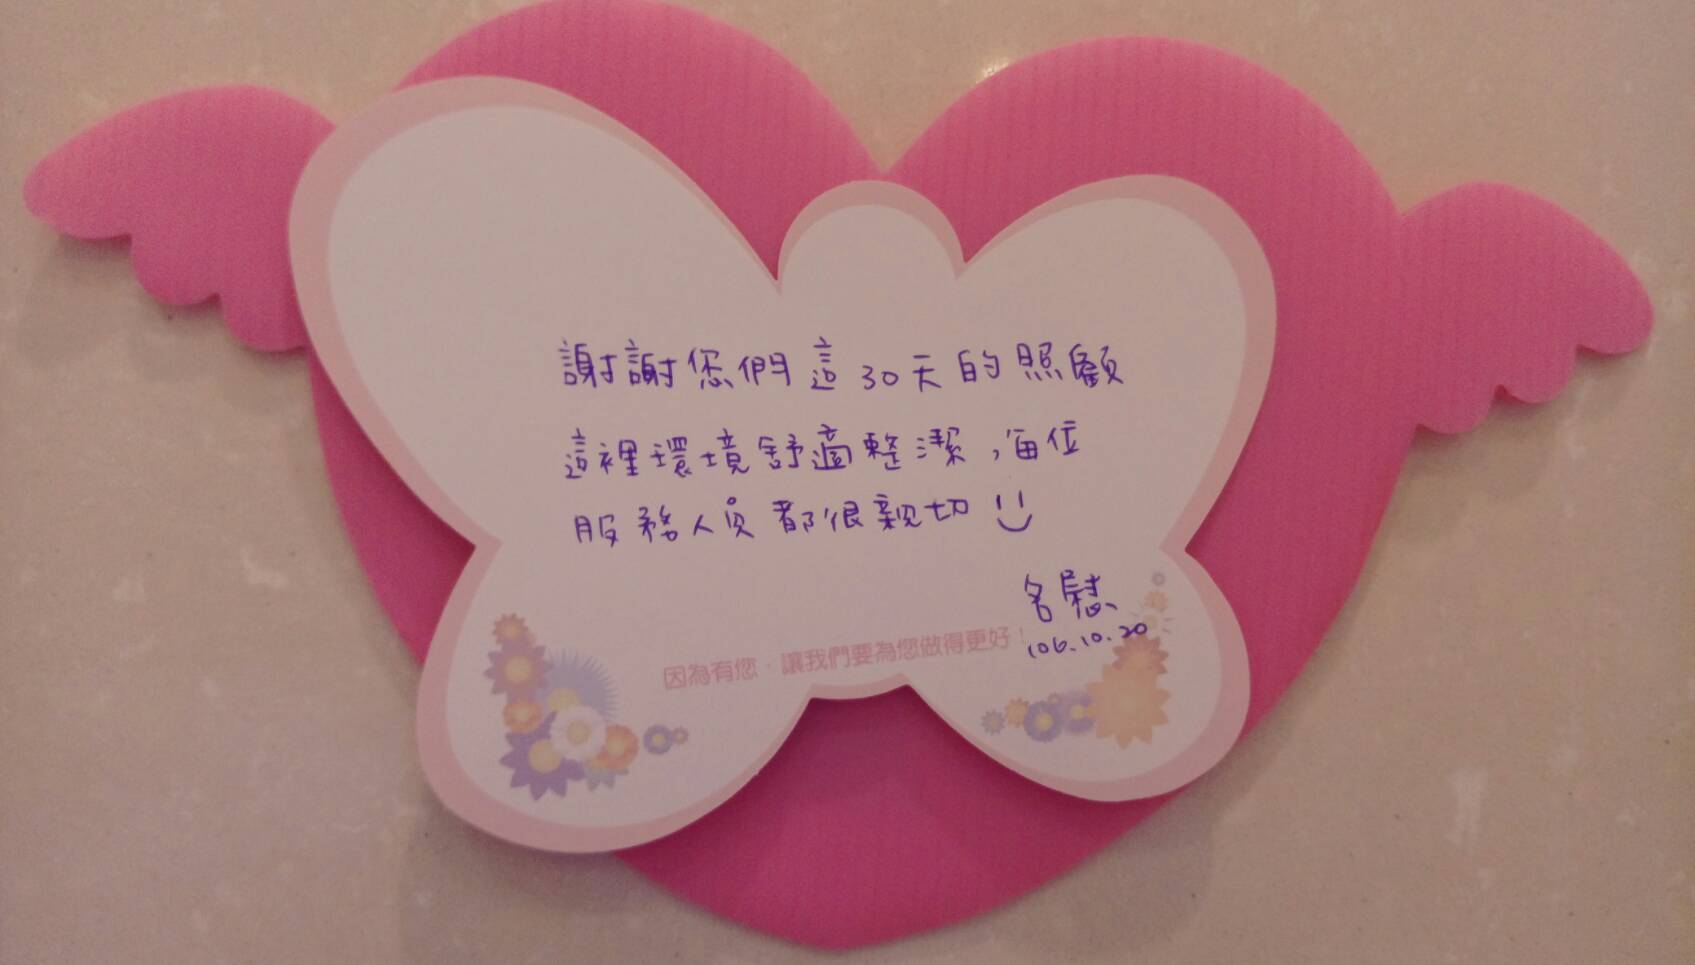 謝謝您們這30天的照顧
這裡環境舒適整潔,每位
服務人員都很親切
名慰
106.10.20
因為有您，讓我們要為您做得更好！